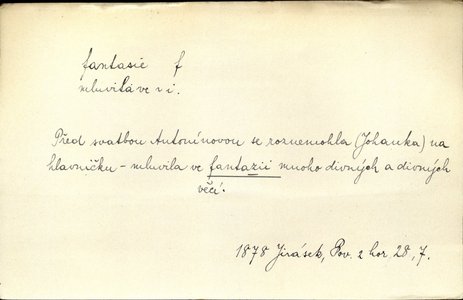 fantasie f
mluvila ve v i.
Před svatbou Antonínovou se roznemohla (Johanka) na
hlavničku - mluvila ve fantazii mnoho divných a divných
věcí.
1878 Jirásek, Pov. z hor. 28, 7.